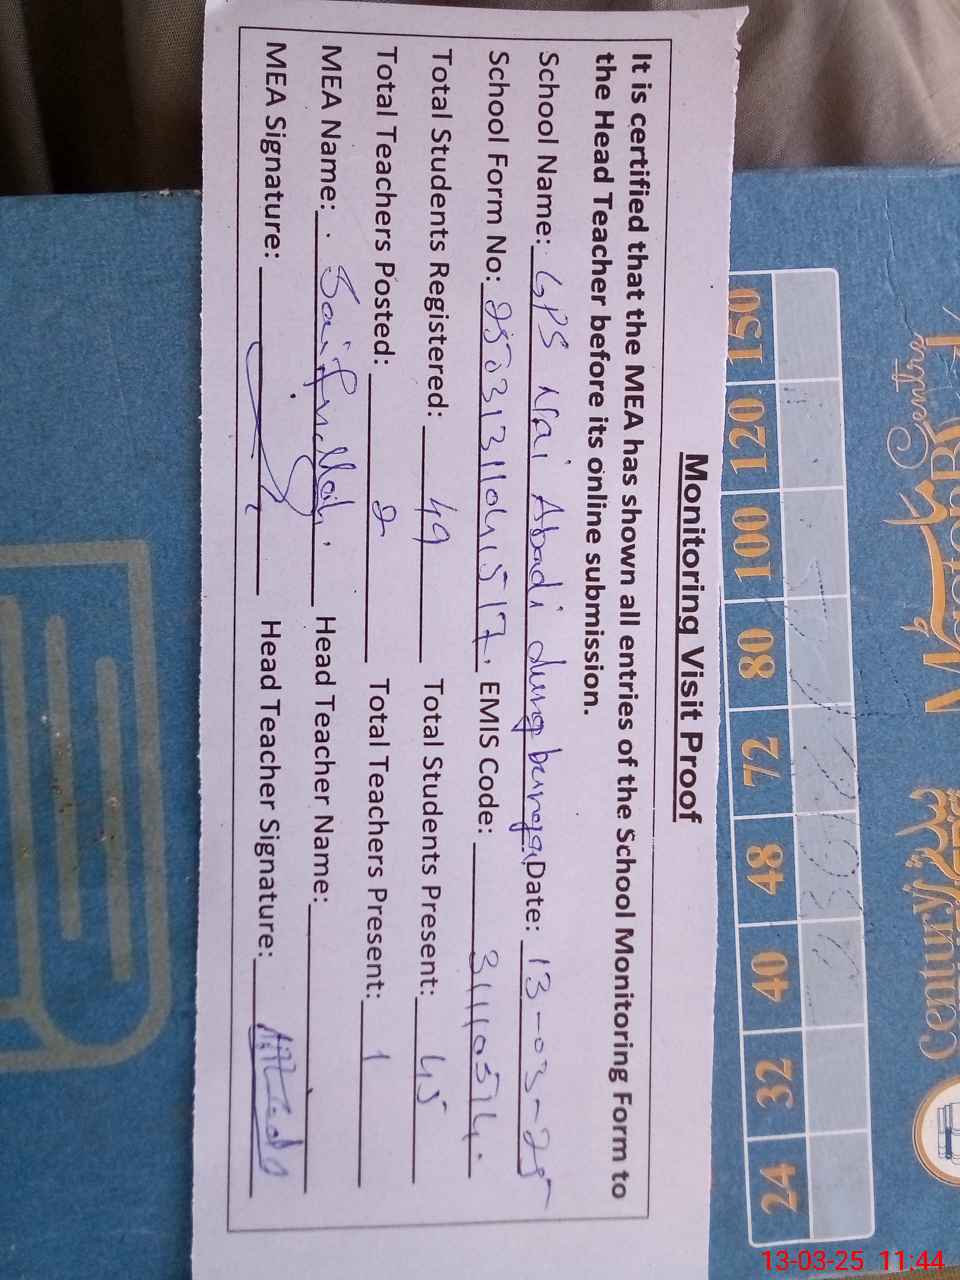 Monitoring Visit Proof
It is certified that the MEA has shown all entries of the School Monitoring Form to
the Head Teacher before its online submission.
School Name: GPS Nai Abadi Date: 13-03-25
School Form No: EMIS Code: 31110514
Total Students Registered: 49 Total Students Present: 45
Total Teachers Posted: 2 Total Teachers Present: 1
MEA Name: Saifullah Head Teacher Name:
MEA Signature: Head Teacher Signature:
150 120 100 80 72 48 40 32 24
Century
13-03-25 11:44